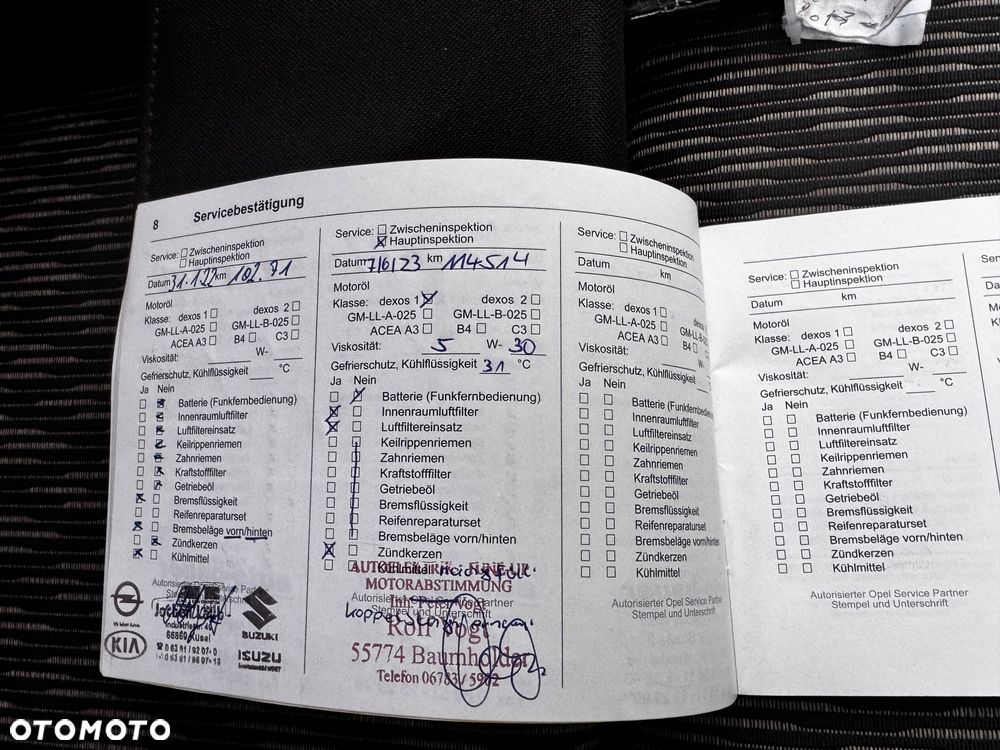 8 Servicebestätigung
Service: Zwischeninspektion
Hauptinspektion
Datum km
Motoröl
Klasse: dexos 1 dexos 2
GM-LL-A-025 GM-LL-B-025
ACEA A3 B4 C3
Viskosität: W-
Gefrierschutz, Kühlflüssigkeit °C
Ja Nein
Batterie (Funkfernbedienung)
Innenraumluftfilter
Luftfiltereinsatz
Keilrippenriemen
Zahnriemen
Kraftstofffilter
Getriebeöl
Bremsflüssigkeit
Reifenreparaturset
Bremsbeläge vorn/hinten
Zündkerzen
Kühlmittel
Autorisierter Opel Service Partner
66869 Kusel
KIA
SUZUKI
ISUZU
Service: Zwischeninspektion
Hauptinspektion
Datum 7/6/23 km 114514
Motoröl
Klasse: dexos 1 dexos 2
GM-LL-A-025 GM-LL-B-025
ACEA A3 B4 C3
Viskosität: 5 W- 30
Gefrierschutz, Kühlflüssigkeit 31 °C
Ja Nein
Batterie (Funkfernbedienung)
Innenraumluftfilter
Luftfiltereinsatz
Keilrippenriemen
Zahnriemen
Kraftstofffilter
Getriebeöl
Bremsflüssigkeit
Reifenreparaturset
Bremsbeläge vorn/hinten
Zündkerzen
Kühlmittel
AUTOELEKTRIK - TUNE-UP
MOTORABSTIMMUNG
Stempel und Unterschrift
Inh. Peter Vogt
Rolf Vogt
55774 Baumholder
Telefon 06783 / 5902
Service: Zwischeninspektion
Hauptinspektion
Datum km
Motoröl
Klasse: dexos 1 dexos
GM-LL-A-025 GM-LL-B-02
ACEA A3 B4
Viskosität: W-
Gefrierschutz, Kühlflüssigkeit
Ja Nein
Batterie (Funkfernbedien
Innenraumluftfilter
Luftfiltereinsatz
Keilrippenriemen
Zahnriemen
Kraftstofffilter
Getriebeöl
Bremsflüssigkeit
Reifenreparaturset
Bremsbeläge vorn/hinten
Zündkerzen
Kühlmittel
Autorisierter Opel Service Partner
Stempel und Unterschrift
Service: Zwischeninspektion
Hauptinspektion
Datum km
Motoröl
Klasse: dexos 1 dexos 2
GM-LL-A-025 GM-LL-B-025
ACEA A3 B4 C3
Viskosität: W-
Gefrierschutz, Kühlflüssigkeit °C
Ja Nein
Batterie (Funkfernbedienung)
Innenraumluftfilter
Luftfiltereinsatz
Keilrippenriemen
Zahnriemen
Kraftstofffilter
Getriebeöl
Bremsflüssigkeit
Reifenreparaturset
Bremsbeläge vorn/hinten
Zündkerzen
Kühlmittel
Autorisierter Opel Service Partner
Stempel und Unterschrift
OTOMOTO